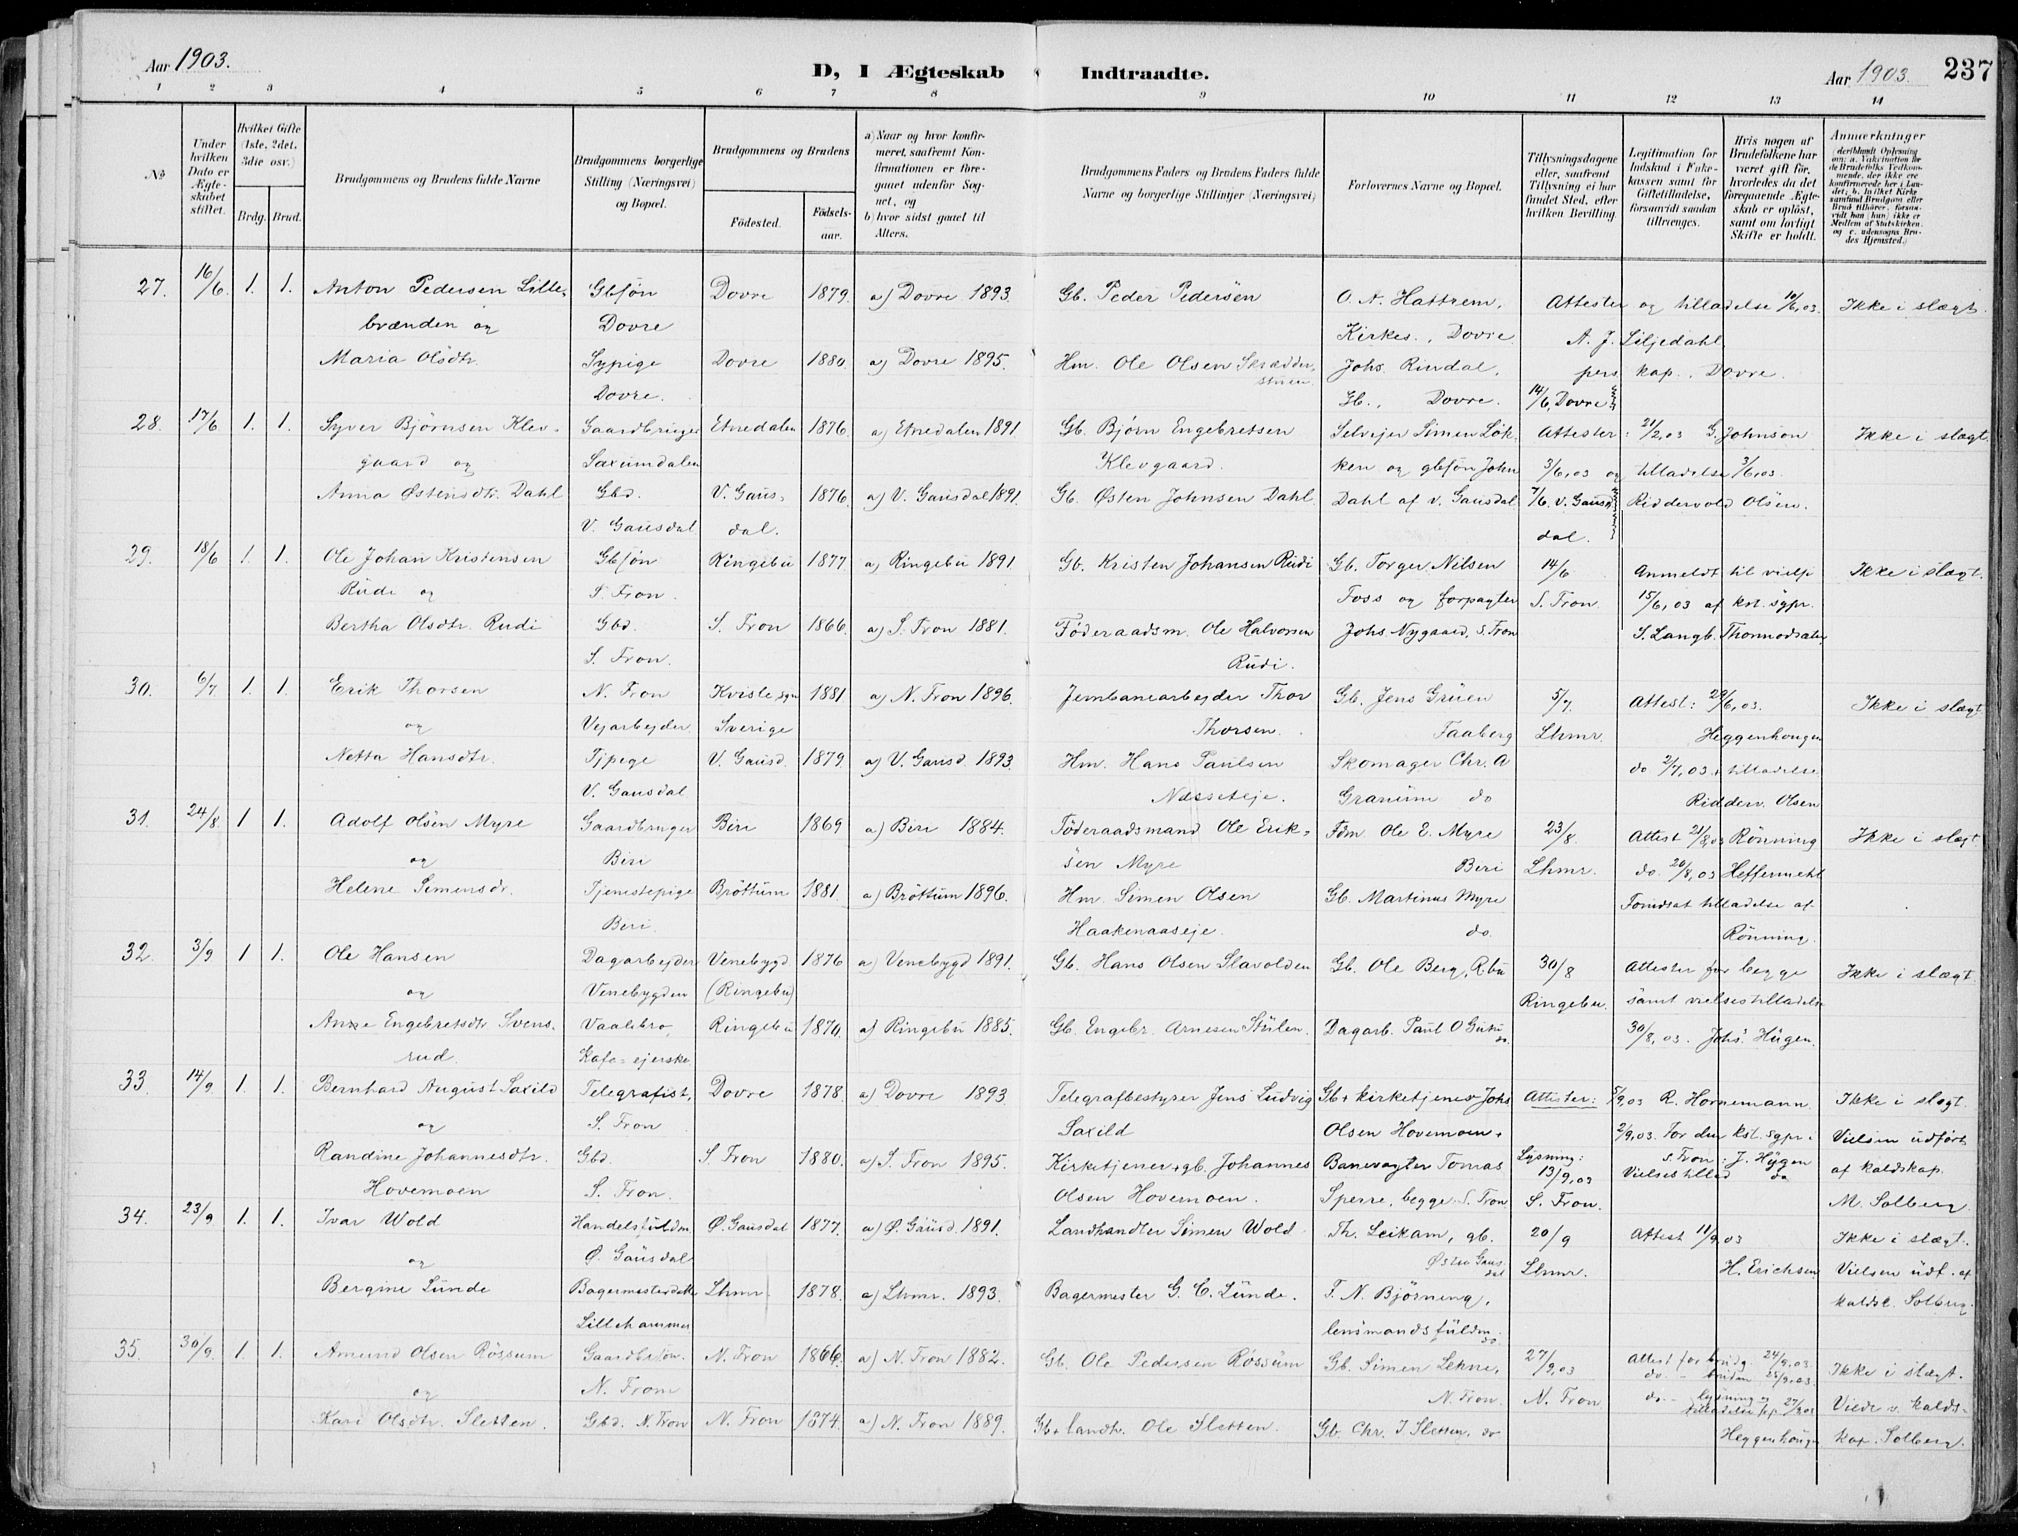 Aar 1903.
D, I Ægteskab Indtraadte.
Aar 1903. 237
1 2 3 4 5 6 7 8 9 10 11 12 13 14
№
Under hvilken Dato er Ægteskabet stiftet.
Hvilket Gifte (1ste, 2det, 3die osv.)
Brdg. Brud.
Brudgommens og Brudens fulde Navne
Brudgommens borgerlige Stilling (Næringsvei) og Bopæl.
Brudgommens og Brudens
Fødested. Fødselsaar.
a) Naar og hvor konfirmeret, saafremt Konfirmationen er foregaaet udenfor Sognet, og
b) hvor sidst gaaet til Alters.
Brudgommens Faders og Brudens Faders fulde Navne og borgerlige Stillinger (Næringsvei)
Forlovernes Navne og Bopæl.
Tillysningsdagene eller, saafremt Tillysning ei har fundet Sted, efter hvilken Bevilling.
Legitimation for Indskud i Enkekassen samt for Giftetilladelse, forsaavidt saadan tiltrænges.
Hvis nogen af Brudefolkene har været gift før, hvorledes da det foregaaende Ægteskab er opløst, samt om lovligt Skifte er holdt.
Anmærkninger
27. 16/6 1. 1. Anton Pedersen Lille- Gbsøn Dovre 1879. a) Dovre 1893. Gb. Peder Pedersen O. N. Hattrem, Attester og tilladelse 10/6,03. Ikke i slægt.
brænden og Dovre Kirkes., Dovre A. J. Liljedahl
Maria Olsdtr. Sypige Dovre 1880 a) Dovre 1895. Hm. Ole Olsen Skrædder- Johs. Rindal, pers kap., Dovre.
Dovre. stuen Gb., Dovre. 14/6, Dovre
28. 17/6 1. 1. Syver Bjørnsen Klev- Gaardbruger Etnedalen 1876 a) Etnedalen 1891 Gb. Bjørn Engebretsen Selvejer Simen Løk- Attester: 21/2,03 G. Johnson Ikke i slægt
gaard og Saxumdalen Klevgaard. ken og gbsøn John 3/6,03 og tilladelse 3/6,03.
Anna Østensdtr. Dahl Gbd. V. Gaus- 1876 a) V. Gausdal 1891. Gb. Østen Johnsen Dahl Dahl af v. Gausdal 7/6 v. Gaus- Riddervold Olsen.
V. Gausdal dal. dal.
29. 18/6 1. 1. Ole Johan Kristensen Gbsøn Ringebu 1877 a) Ringebu 1891 Gb. Kristen Johansen Rudi Gb. Torger Nilsen 14/6 Anmeldt til vielse Ikke i slægt.
Rudi og S. Fron. Foss og forpagter S. Fron. 15/6,03 af kst. sgpr.
Bertha Olsdtr. Rudi Gbd. S. Fron 1866. a) S. Fron 1881. Føderaadsm. Ole Halvorsen Johs Nygaard, S. Fron S. Langb. Thormodsæter
S. Fron. Rudi.
30. 6/7 1. 1. Erik Thorsen N. Fron Kviste sgn 1881 a) N. Fron 1896. Jernbanearbejder Thor Gb. Jens Gruen 5/7. Attest: 29/6,03. Ikke i slægt
og Vejarbejder Sverige Thorsen. Faaberg Lhmr. Heggenhougen
Netta Hansdtr. Tjpige V. Gausd. 1879. a) V. Gausd. 1893. Hm. Hans Paulsen Skomager Chr. A do 2/7,03 tilladelse
V. Gausdal Næsseteje. Granum do Ridderv. Olsen
31. 24/8 1 1. Adolf Olsen Myre Gaardbruger Biri 1869 a) Biri 1884. Føderaadsmand Ole Erik- Fdm Ole E. Myre 23/8. Attest 21/8,03 Rønning Ikke i slægt
og Biri sen Myre Biri Lhmr. do. 20/8,03 Heffermehl
Helene Simensdr. Tjenestepige Brøttum 1881. a) Brøttum 1896. Hm. Simen Olsen Gb. Martinus Myre Forudsat tilladelse af
Biri. Haakenaaseje. do. Rønning.
32. 3/9 1 1. Ole Hansen Dagarbejder Venebygd 1876 a) Venebygd 1891. Gb. Hans Olsen Slavolden Gb. Ole Berg, R.bu 30/8 Attester for begge Ikke i slægt
og Venebygden (Ringebu) Ringebu. samt vielsestilladelse
Anne Engebretsdtr Svens- Vaalebro, Ringebu 1870. a) Ringebu 1885. Gb. Engebr. Arnesen Stulen. Dagarb. Paul O 30/8,03. Johs. Hugen.
rud. Kafe-ejerske
33. 14/9. 1. 1. Bernhard August Saxild Telegrafist, Dovre 1878. a) Dovre 1893 Telegrafbestyrer Jens Ludvig Gb + kirketjener Johs Attester: 5/9,03 R. Hornemann. Ikke i slægt.
og S. Fron Saxild Olsen Hovemoen. 2/9,03. For den kst. sgpr i Vielsen udført
Randine Johannesdtr. Gbd. S. Fron 1880. a) S. Fron 1895. Kirketjener + gb. Johannes Banevogter Tomas Lysning: S. Fron: J. Hugen af kaldskap.
Hovemoen S. Fron. Olsen Hovemoen. Sperre, begge S. Fron 13/9,03 S. Fron. Vielsestillad do M. Solberg.
34. 23/9 1. 1. Ivar Wold Handelsfuldm. Ø. Gausdal 1877. a) Ø. Gausd. 1891. Landhandler Simen Wold Th. Leikam, gb. 20/9 Attest 11/9,03 Ikke i slægt.
og Ø. Gausdal Østre Gausdal Lhmr. H. Erichsen Vielsen udf. af
Bergine Lunde Bagermesterdatter Lhmr 1878. a) Lhmr. 1893. Bagermester G. C. Lunde. F. N. Bjørning, kaldsk. Solberg.
Lillehammer lensmandsfuldm. do
35. 30/9. 1. 1. Amund Olsen Røssum Gaardbr. søn. N. Fron 1866. a) N. Fron 1882. Gb. Ole Pedersen Røssum Gb. Simen Lekne, 27/9,03 Attest for brudg. 24/9,03. Ikke i slægt.
og N. Fron N. Fron. N. Fron do - bruden 25/9,03.
Kari Olsdtr. Sletten. Gbd. N. Fron N. Fron 1874. a) N. Fron 1889. Gb + landh. Ole Sletten. Gb. Chr. J Sletten, do do - lysning og tilladelse 27/9 03 Viede v. kalds-
Heggenhougen kap. Solberg.